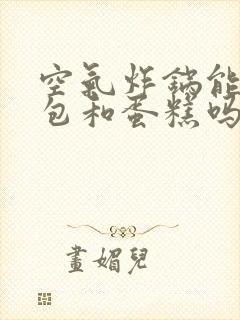 空氣炸鍋能
包和蛋糕吗
畫媚兒